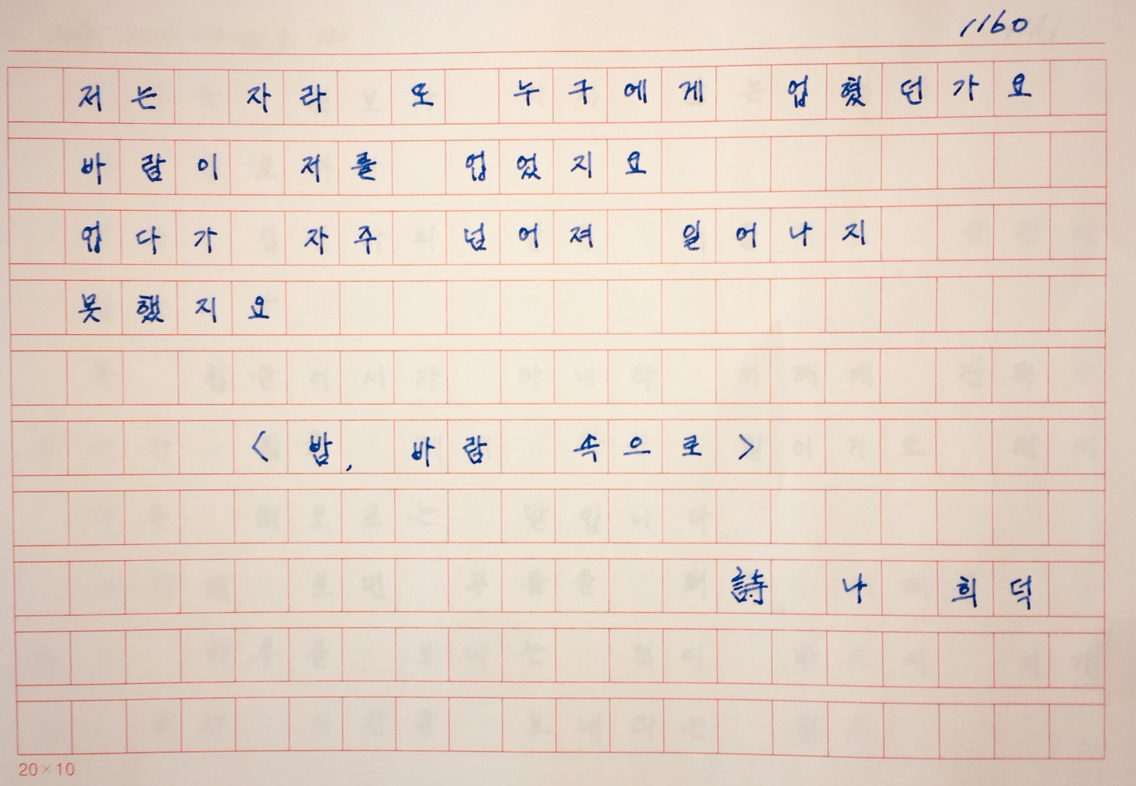 1160
저는 자라 또 누구에게 업혔던가요
바람이 저를 업었지요
업다가 자주 넘어져 일어나지
못했지요
<밤, 바람 속으로>
詩 나 희덕
20×10